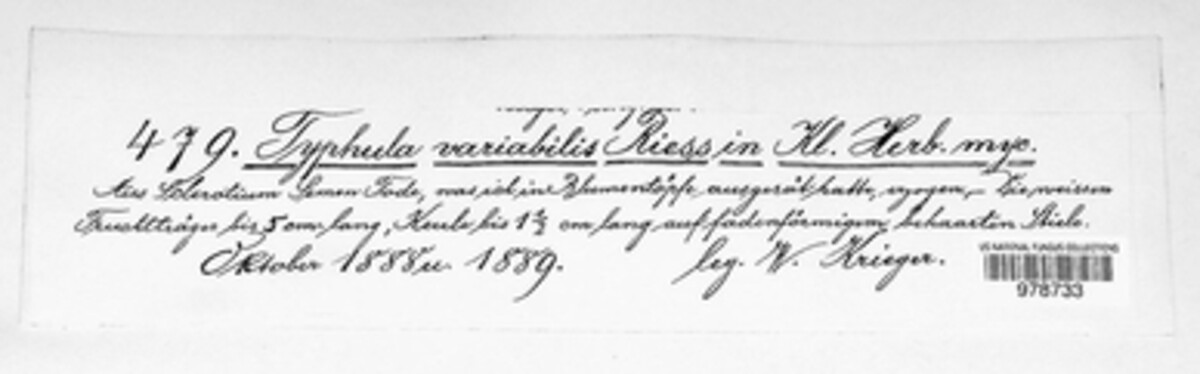 479. Typhula variabilis Riess in Kl. Herb. myc.
Aus Sclerotium Semen Tode, was ich in Blumentöpfe ausgesät hatte, gezogen. – Die weissen
Fruchtträger bis 5 cm lang, Keule bis 1½ cm lang auf fadenförmigem, behaarten Stiele.
Oktober 1888 u. 1889. leg. W. Krieger.
US NATIONAL FUNGUS COLLECTIONS
978733